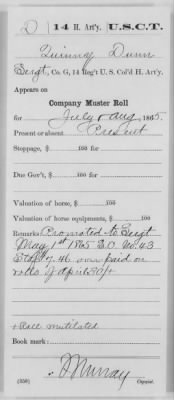 D | 14 H. Art'y. | U.S.C.T.
Quinny Dunn
Sergt, Co. G, 14 Reg't U S. Col'd H. Art'y.
Appears on
Company Muster Roll
for July & Aug, 1865.
Present or absent Present
Stoppage, $ 100 for
Due Gov't, $ 100 for
Valuation of horse, $ 100
Valuation of horse equipments, $ 100
Remarks: Promoted to Sergt
May 1st 1865 S.O. No. 43
Stop $7.46 over paid on
rolls of April 30/
Place mutilated
Book mark:
Murray
(358) Copyist.